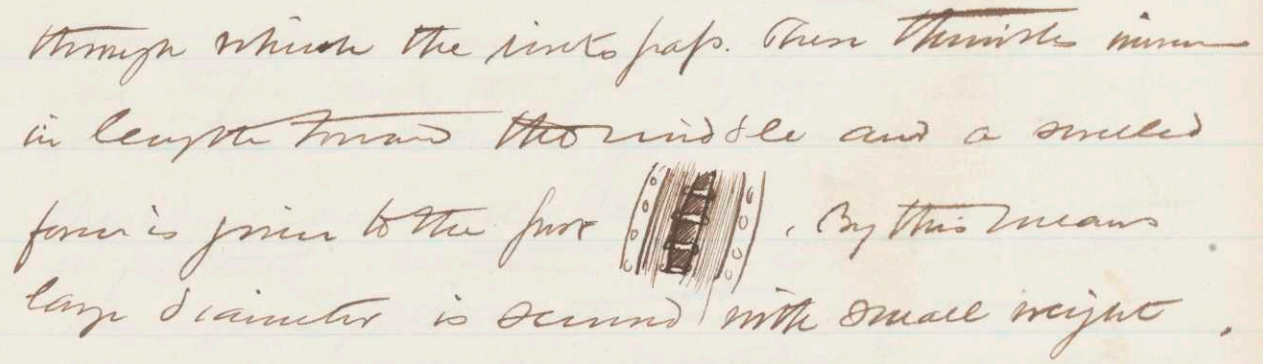 through which the rivets pass. These thimbles increase
in length toward the middle and a swelled
form is given to the post . By this means
large diameter is secured with small weight.